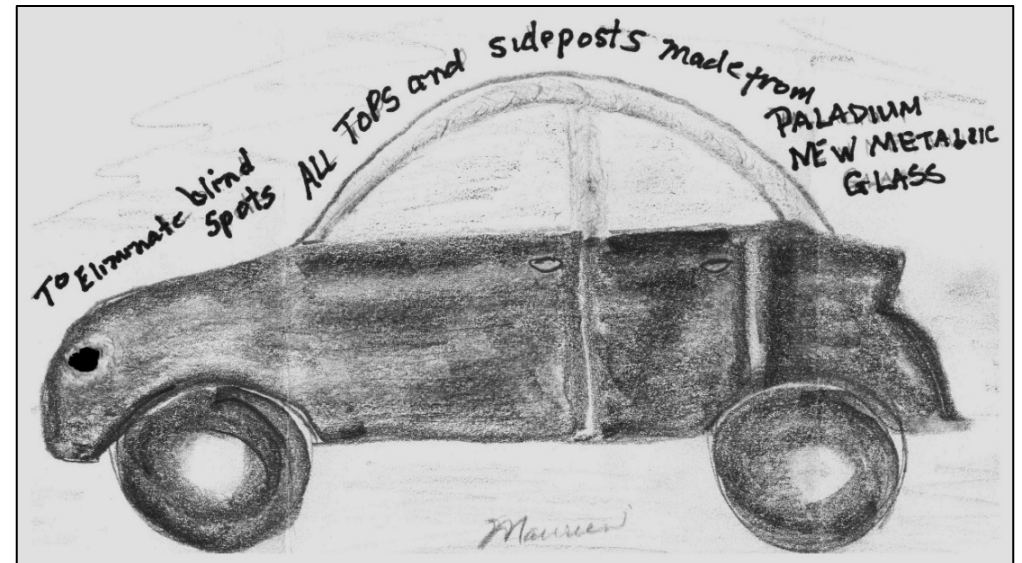 To Eliminate blind
spots ALL TOPS and sideposts made from
PALADIUM
NEW METALLIC
GLASS